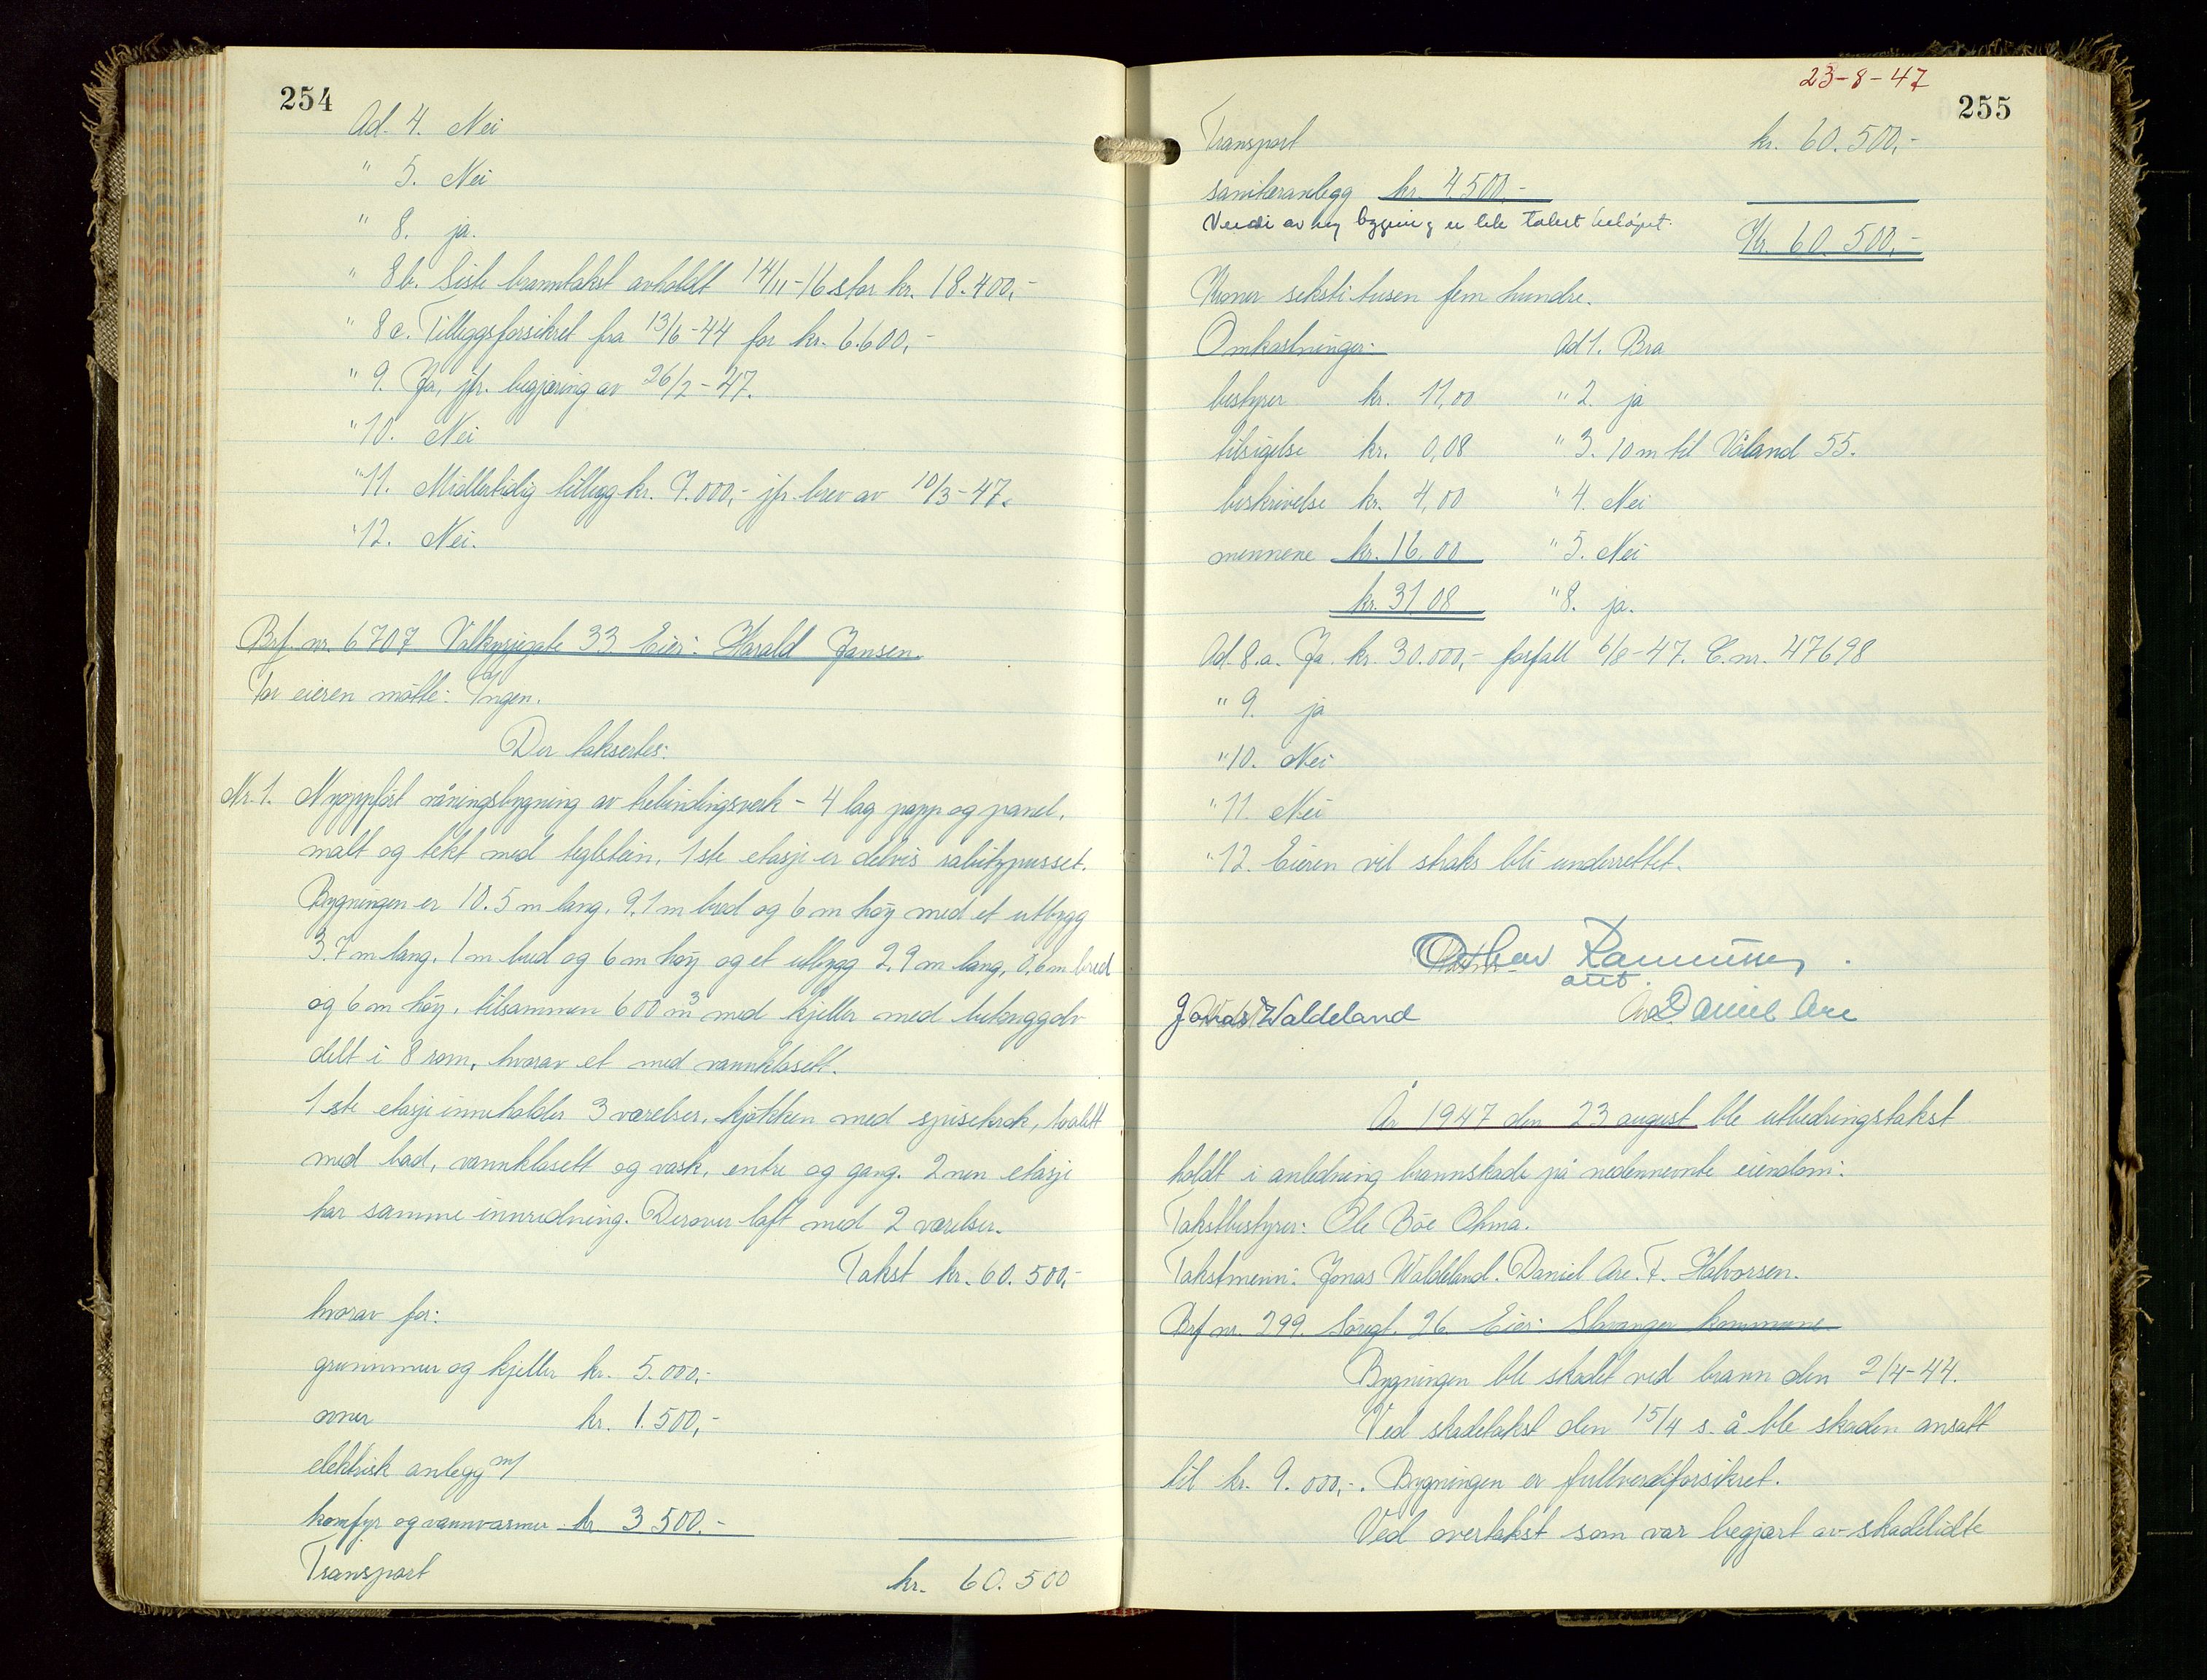 254
Ad. 4. Nei
" 5. Nei
" 8. ja.
" 8b. Siste branntakst avholdt 14/11-16 stor kr. 18.400,-
" 8c. Tilleggsforsikret fra 13/6-44 for kr. 6.600,-
" 9. Ja, jfr. begjæring av 26/2-47.
" 10. Nei
" 11. Midlertidig tillegg kr. 9.000,- jfr. brev av 10/3-47.
" 12. Nei.
Brf. nr. 6707 Valkyrjegate 33 Eier: Harald Jansen.
For eieren møtte: Ingen.
Der taksertes:
Nr. 1. Nyoppført våningsbygning av trebindingsverk - 4 lag papp og panel,
malt og tekt med teglstein, 1ste etasje er delvis rabitzpusset.
Bygningen er 10.5 m lang, 9,1 m bred og 6 m høy med et utbygg
3.7 m lang, 1 m bred og 6 m høy og et utbygg 2,9 m lang, 0,6 m bred
og 6 m høy, tilsammen 600 m³ med kjeller med betonggolv
delt i 8 rom, hvorav et med vannklosett.
1ste etasje inneholder 3 værelser, kjøkken med spisekrok, toalett
med bad, vannklosett og vask, entre og gang. 2nen etasje
har samme innredning. Derover loft med 2 værelser.
Takst kr. 60.500,-
hvorav for:
grunnmur og kjeller kr. 5.000,-
ovner kr. 1.500,-
elektrisk anlegg m/
komfyr og vannvarmer kr. 3 500.-
Transport kr. 60.500
23-8-47
255
Transport kr. 60.500,-
sanitæranlegg kr. 4.500,-
Verdi av ny bygning er lik takst beløpet.
Kr. 60.500,-
Kroner seksti tusen fem hundre.
Omkostninger: Ad 1. Bra
bestyrer kr. 11,00 " 2. ja
tilsigelse kr. 0,08 " 3. 10 m til Våland 55.
beskrivelse kr. 4,00 " 4. Nei
mennene kr. 16,00 " 5. Nei
kr. 31,08 " 8. ja.
Ad. 8.a. Ja kr. 30.000,- forfall 6/8-47. C.nr. 47698
" 9. ja
" 10. Nei
" 11. Nei
" 12. Eieren vil straks bli underrettet.
Rasmussen
att.
Jonas Waldeland Daniel Are
År 1947 den 23 august ble utbedringstakst
holdt i anledning brannskade på nedennevnte eiendom:
Takstbestyrer: Ole Bøe Ohma.
Takstmenn: Jonas Waldeland. Daniel Are. F. Halvorsen.
Brf nr. 299. Søregt. 26. Eier: Stavanger kommune.
Bygningen ble skadet ved brann den 2/4-44.
Ved skadetakst den 15/4 s. å ble skaden ansatt
til kr. 9.000,-. Bygningen er fullverdiforsikret.
Ved overtakst som var begjært av skadelidte